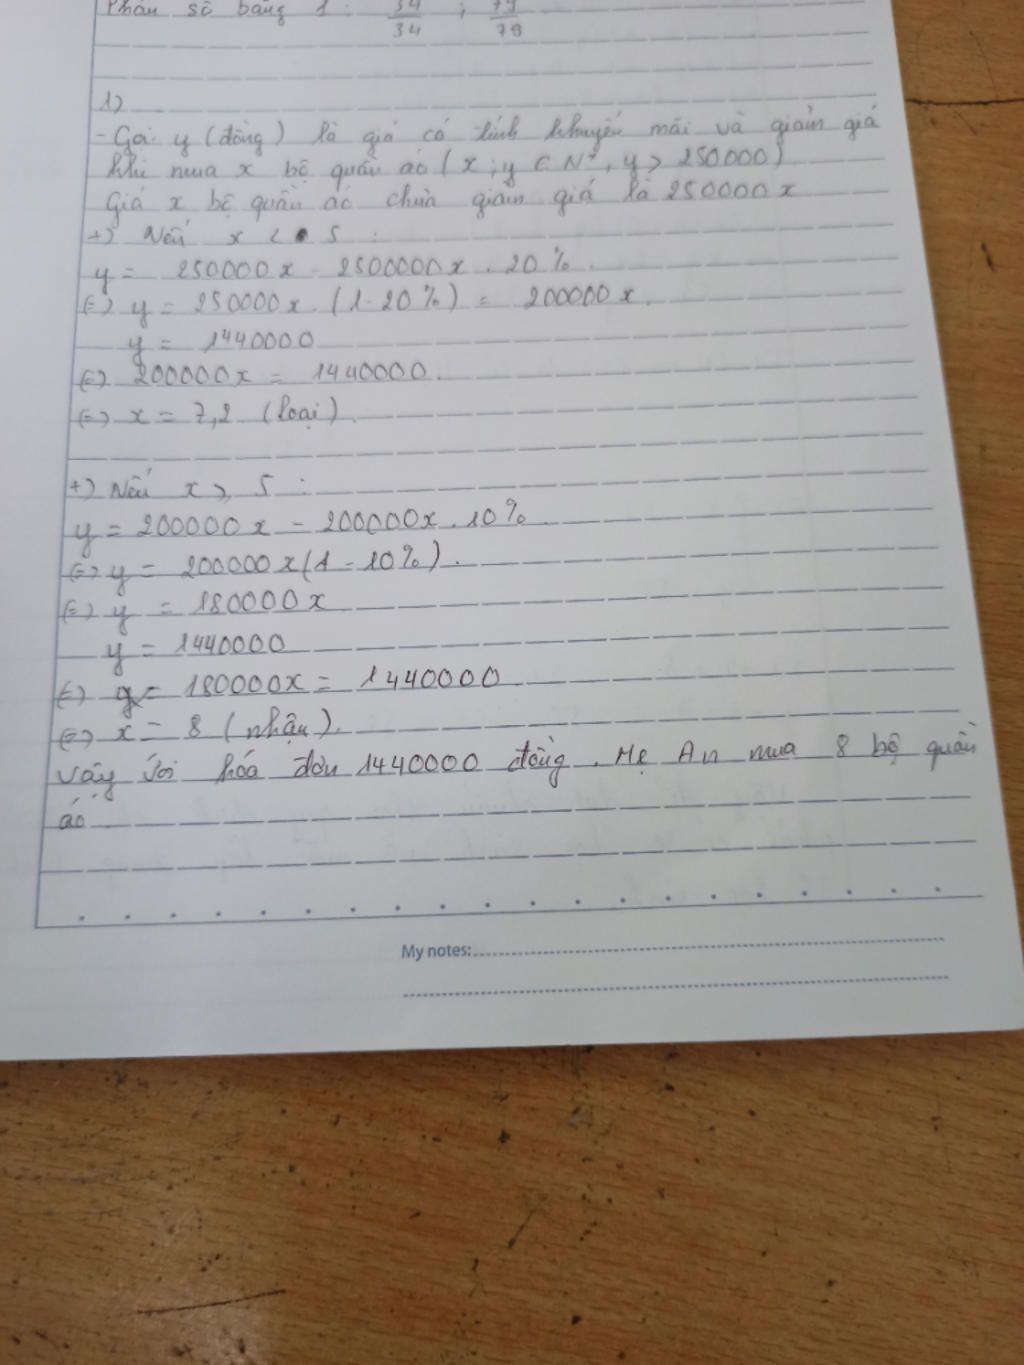 Phân số bằng 1: 34/34 ; 79/79
1)
- Gọi y (đồng) là giá có tính khuyến mãi và giảm giá
khi mua x bộ quần áo ( x ; y ∈ N*, y > 250000)
Giá x bộ quần áo chưa giảm giá là 250000 x
+) Nếu x < 5 :
y = 250000x - 2500000x . 20%.
(=) y = 250000x . (1 - 20%) = 200000x.
y = 1440000
(=) 200000x = 1440000.
(=) x = 7,2 (loại).
+) Nếu x ⩾ 5 :
y = 200000x - 200000x . 10%
(=) y = 200000x (1 - 10%).
(=) y = 180000x
y = 1440000
(=) y = 180000x = 1440000
(=) x = 8 (nhận).
Vậy với hóa đơn 1440000 đồng. Mẹ An mua 8 bộ quần
áo.
My notes: